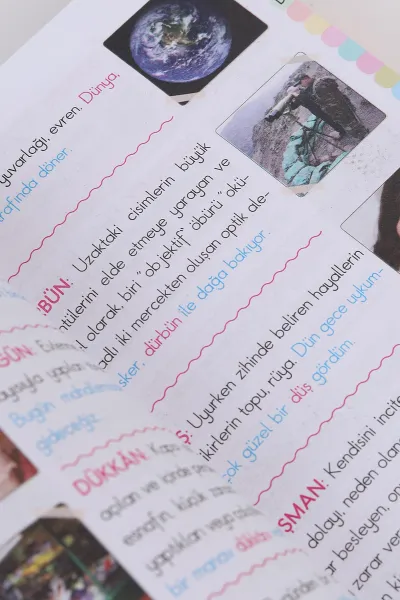 yuvarlağı, evren. Dünya,
arafında döner.
BÜN: Uzaktaki cisimlerin büyük
ntülerini elde etmeye yarayan ve
l olarak, biri "objektif" öbürü "okü-
adlı iki mercekten oluşan optik ale-
sker, dürbün ile dağa bakıyor.
Ş: Uyurken zihinde beliren hayallerin
ikirlerin topu, rüya. Dün gece uykum-
çok güzel bir düş gördüm.
ŞMAN: Kendisini incite
dolayı, neden olan
ar besleyen, on
zarar ver
GÜN: Evlenm
ayısıyla yapılan
Bugün mahallem
gideceğiz.
DÜKKÂN: Kapıs
açılan ve içinde
esnafın, küçük
yaptıkları veya
bir manav dükkân